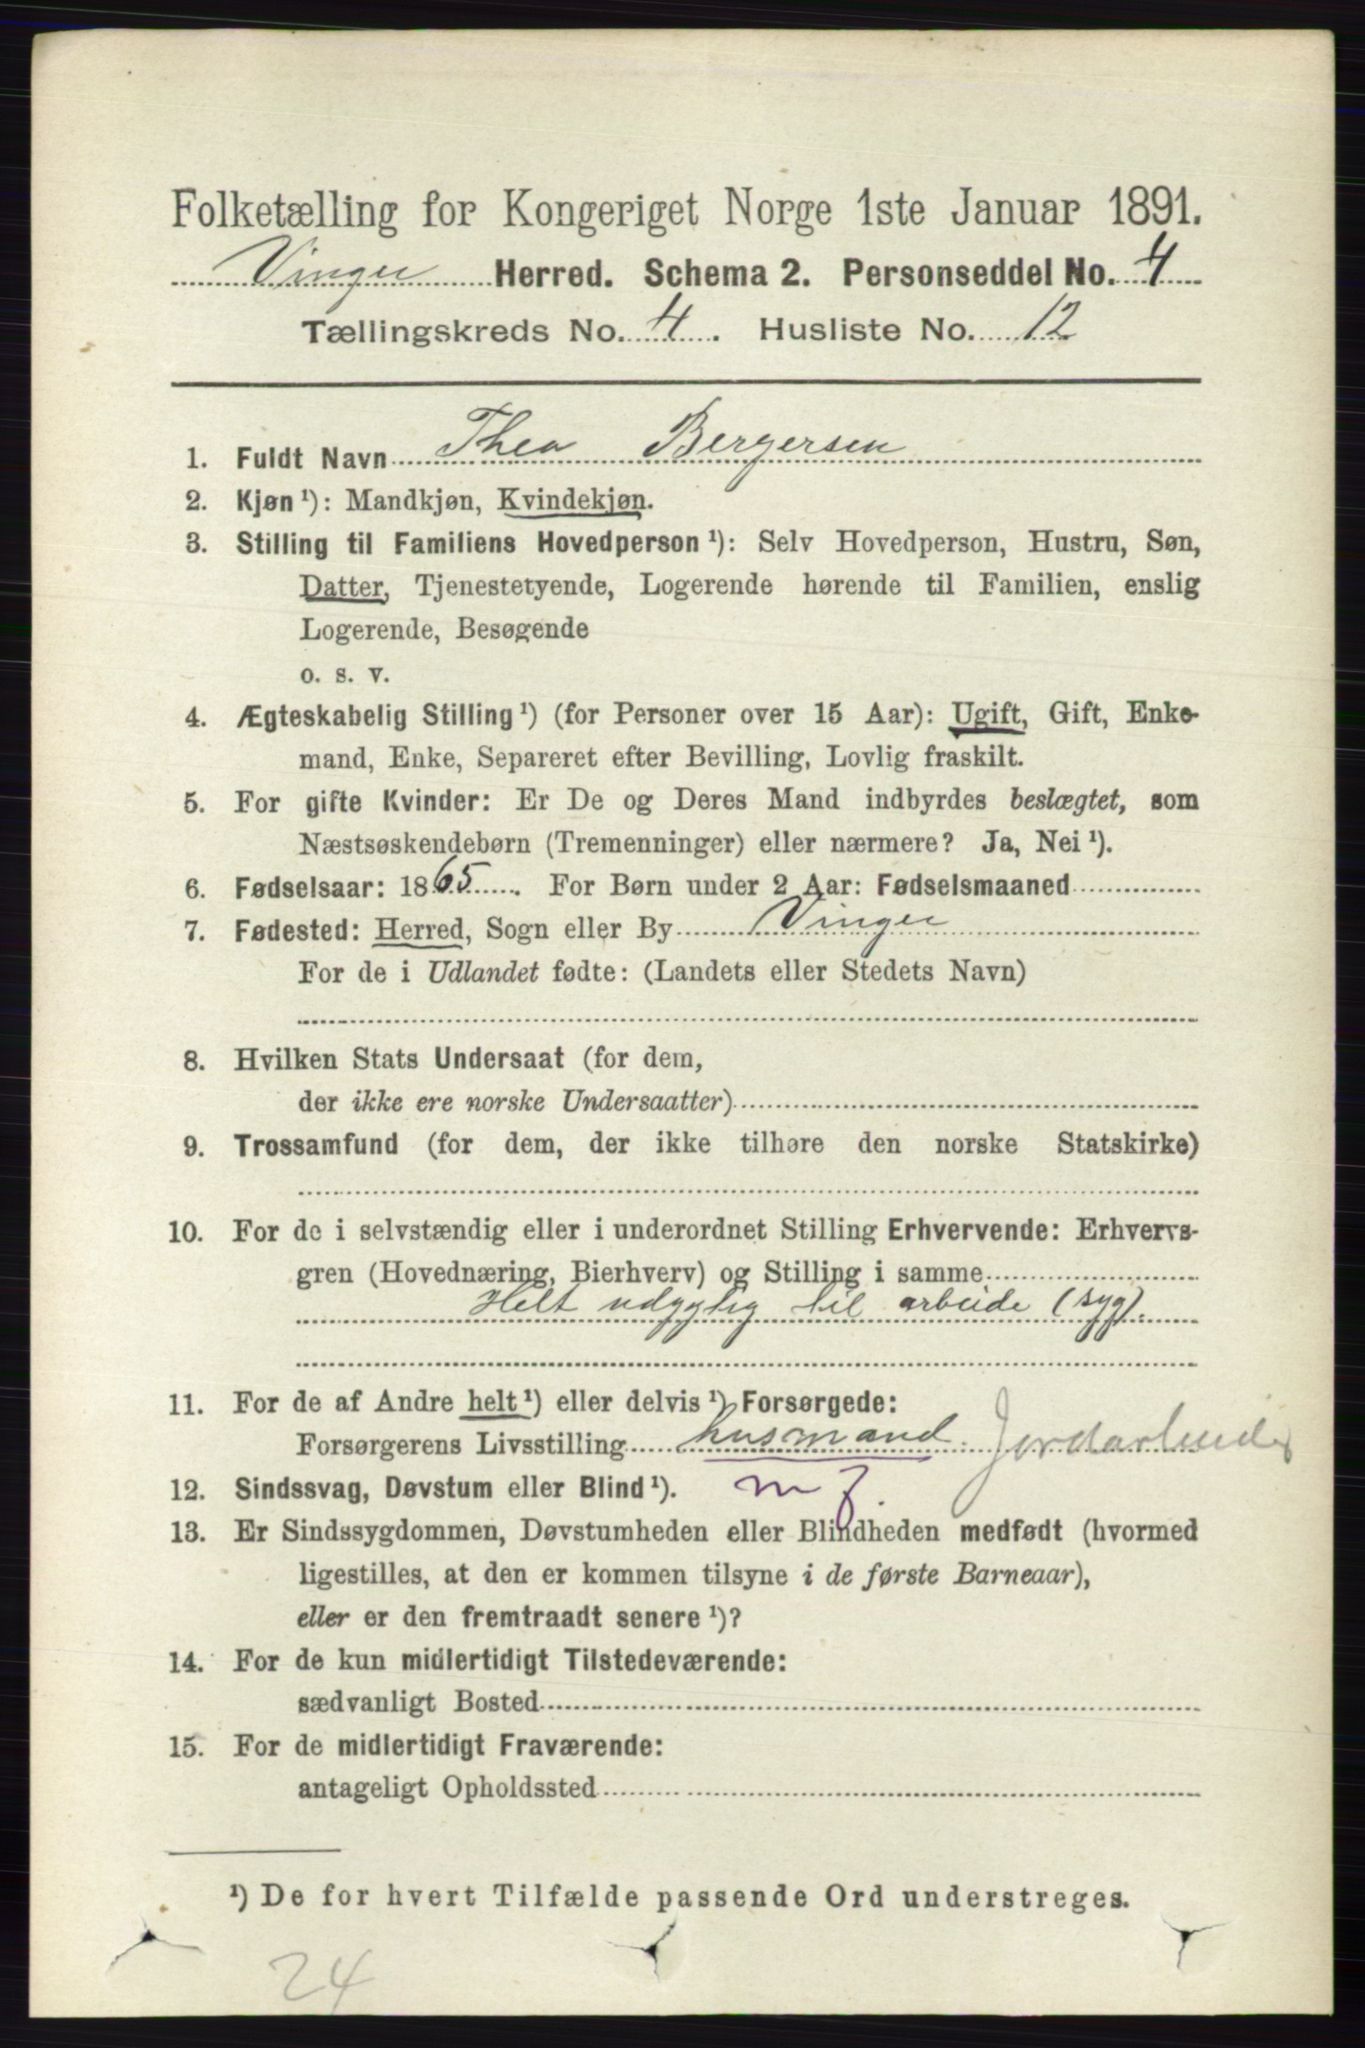 Folketælling for Kongeriget Norge 1ste Januar 1891.
Vinger Herred. Schema 2. Personseddel No. 4
Tællingskreds No. 4. Husliste No. 12
1. Fuldt Navn Thea Bergersen
2. Kjøn ¹): Mandkjøn, Kvindekjøn.
3. Stilling til Familiens Hovedperson ¹): Selv Hovedperson, Hustru, Søn,
Datter, Tjenestetyende, Logerende hørende til Familien, enslig
Logerende, Besøgende
o. s. v.
4. Ægteskabelig Stilling ¹) (for Personer over 15 Aar): Ugift, Gift, Enke-
mand, Enke, Separeret efter Bevilling, Lovlig fraskilt.
5. For gifte Kvinder: Er De og Deres Mand indbyrdes beslægtet, som
Næstsøskendebørn (Tremenninger) eller nærmere? Ja, Nei ¹).
6. Fødselsaar: 1865. For Børn under 2 Aar: Fødselsmaaned
7. Fødested: Herred, Sogn eller By Vinger
For de i Udlandet fødte: (Landets eller Stedets Navn)
8. Hvilken Stats Undersaat (for dem,
der ikke ere norske Undersaatter)
9. Trossamfund (for dem, der ikke tilhøre den norske Statskirke)
10. For de i selvstændig eller i underordnet Stilling Erhvervende: Erhvervs-
gren (Hovednæring, Bierhverv) og Stilling i samme
Helt udygtig til arbeide (syg).
11. For de af Andre helt ¹) eller delvis ¹) Forsørgede:
Forsørgerens Livsstilling husmand. Jordarbeider
12. Sindssvag, Døvstum eller Blind ¹). m j.
13. Er Sindssygdommen, Døvstumheden eller Blindheden medfødt (hvormed
ligestilles, at den er kommen tilsyne i de første Barneaar),
eller er den fremtraadt senere ¹)?
14. For de kun midlertidigt Tilstedeværende:
sædvanligt Bosted
15. For de midlertidigt Fraværende:
antageligt Opholdssted
¹) De for hvert Tilfælde passende Ord understreges.
24